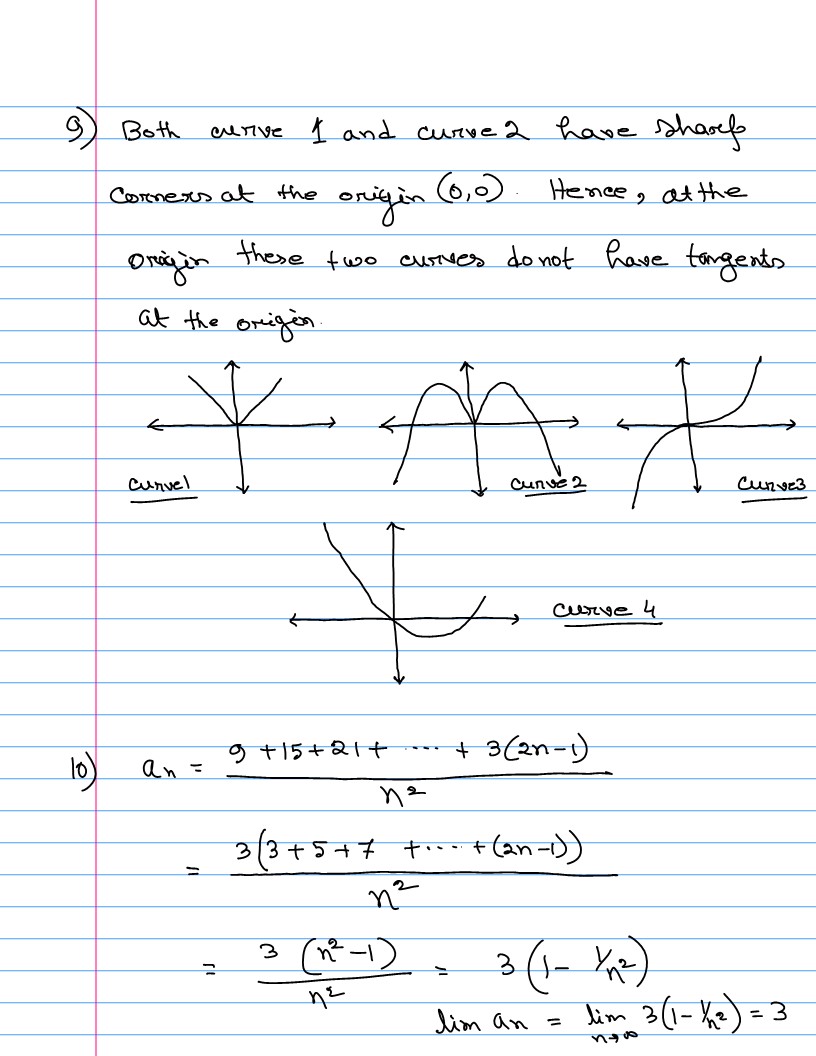 9) Both curve 1 and curve 2 have sharp
corners at the origin (0,0). Hence, at the
origin these two curves do not have tangents
at the origin.
curve1 curve 2 curve3
curve 4
10) an = 9 + 15 + 21 + ···· + 3(2n-1) / n²
= 3(3 + 5 + 7 + ···· + (2n-1)) / n²
= 3 (n²-1) / n² = 3 (1 - 1/n²)
lim an = lim n→∞ 3(1 - 1/n²) = 3